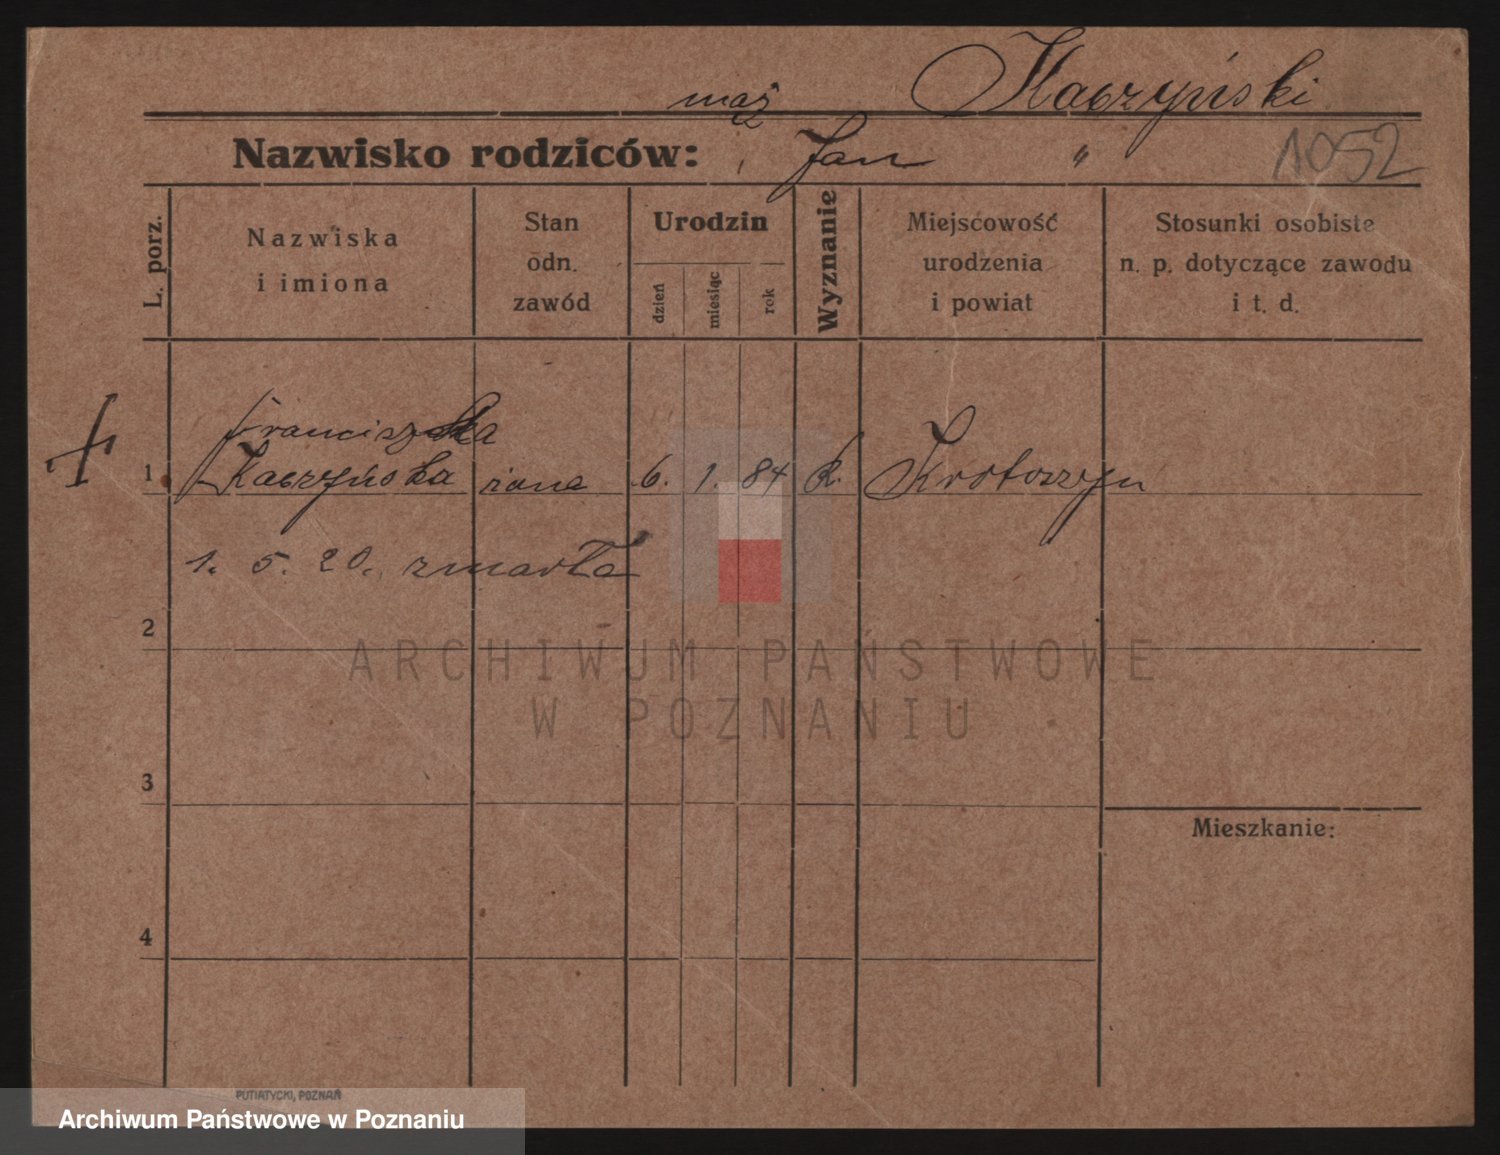 Kaczyński
mąż
Nazwisko rodziców: Jan "
1052
L. porz.
Nazwiska
i imiona
Stan
odn.
zawód
Urodzin
dzień
miesiąc
rok
Wyznanie
Miejscowość
urodzenia
i powiat
Stosunki osobiste
n. p. dotyczące zawodu
i t. d.
Franciszka
1 Kaczyńska żona 6. 1. 84 k. Krotoszyn
1. 5. 20. zmarła
2
ARCHIWUM PAŃSTWOWE
W POZNANIU
3
Mieszkanie:
4
PUTIATYCKI, POZNAŃ
Archiwum Państwowe w Poznaniu